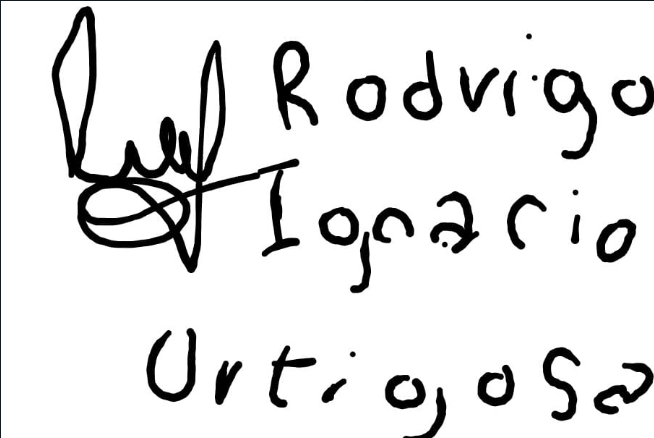 Rodrigo
Ignacio
Urtigosa